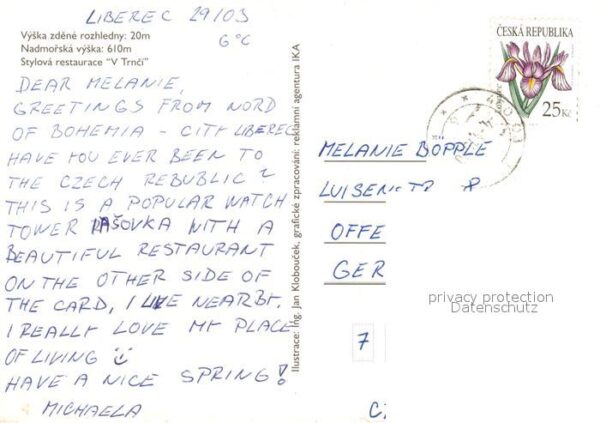 LIBEREC 29/03
6°C
Výška zděné rozhledny: 20m
Nadmořská výška: 610m
Stylová restaurace "V Trnčí"
DEAR MELANIE,
GREETINGS FROM NORD
OF BOHEMIA - CITY LIBEREC
HAVE YOU EVER BEEN TO
THE CZECH REBUBLIC?
THIS IS A POPULAR WATCH
TOWER IAŠOVKA WITH A
BEAUTIFUL RESTAURANT
ON THE OTHER SIDE OF
THE CARD, I LIVE NEARBY.
I REALLY LOVE MY PLACE
OF LIVING
HAVE A NICE SPRING!
MICHAELA
Ilustrace: Ing. Jan Klobouček, grafické zpracování: reklamní agentura IKA
ČESKÁ REPUBLIKA
25 Kč
MELANIE BÖPPLE
LUISEN
OFFE
GER
privacy protection
Datenschutz
7